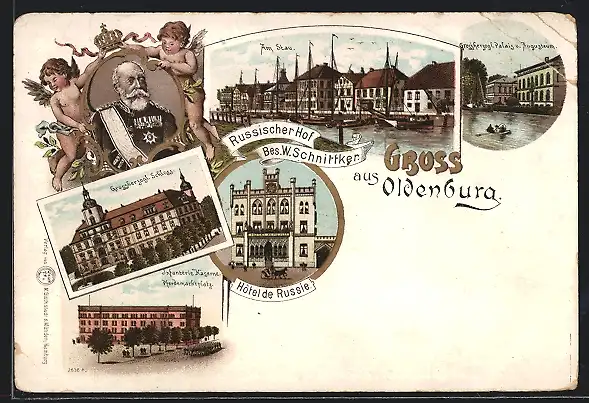 Am Stau.
Grossherzogl. Palais u. Augusteum.
Russischer Hof
Bes. W. Schnittker.
GRUSS
aus Oldenburg.
Grossherzogl. Schloss.
Hôtel de Russie.
Infanterie Kaserne
Pferdemarktplatz.
Verlag von